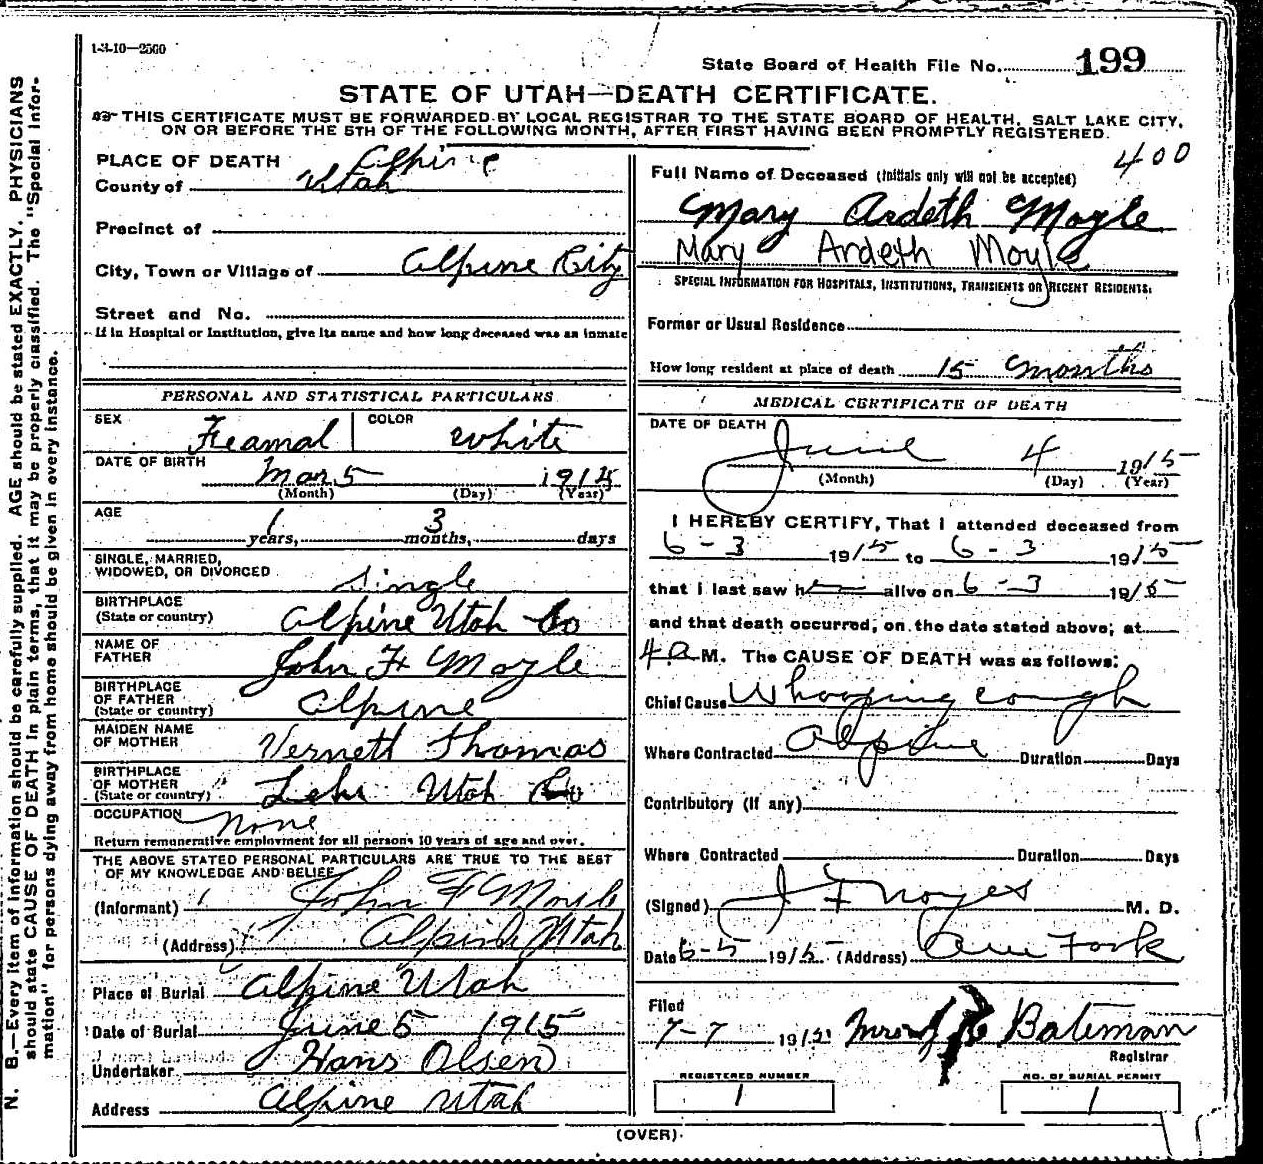 1-3-10—2500
State Board of Health File No. 199
STATE OF UTAH—DEATH CERTIFICATE.
THIS CERTIFICATE MUST BE FORWARDED BY LOCAL REGISTRAR TO THE STATE BOARD OF HEALTH, SALT LAKE CITY,
ON OR BEFORE THE 5TH OF THE FOLLOWING MONTH, AFTER FIRST HAVING BEEN PROMPTLY REGISTERED.
PLACE OF DEATH Alpine
County of Utah
Precinct of
City, Town or Village of Alpine City
Street and No.
If in Hospital or Institution, give its name and how long deceased was an inmate
PERSONAL AND STATISTICAL PARTICULARS
SEX Feamal COLOR White
DATE OF BIRTH Mar 5 1914
(Month) (Day) (Year)
AGE 1 years, 3 months, days
SINGLE, MARRIED,
WIDOWED, OR DIVORCED Single
BIRTHPLACE
(State or country) Alpine Utah Co
NAME OF
FATHER John F Moyle
BIRTHPLACE
OF FATHER
(State or country) Alpine
MAIDEN NAME
OF MOTHER Verneth Thomas
BIRTHPLACE
OF MOTHER
(State or country) Lehi Utah Co
OCCUPATION None
Return remunerative employment for all persons 10 years of age and over.
THE ABOVE STATED PERSONAL PARTICULARS ARE TRUE TO THE BEST
OF MY KNOWLEDGE AND BELIEF
(Informant) John F Moyle
(Address) Alpine Utah
Place of Burial Alpine Utah
Date of Burial June 5 1915
Undertaker Hans Olsen
Address Alpine Utah
400
Full Name of Deceased (initials only will not be accepted)
Mary Ardeth Moyle
Mary Ardeth Moyle
SPECIAL INFORMATION FOR HOSPITALS, INSTITUTIONS, TRANSIENTS OR RECENT RESIDENTS.
Former or Usual Residence
How long resident at place of death 15 months
MEDICAL CERTIFICATE OF DEATH
DATE OF DEATH June 4 1915
(Month) (Day) (Year)
I HEREBY CERTIFY, That I attended deceased from
6-3 1915 to 6-3 1915
that I last saw h alive on 6-3 1915
and that death occurred, on the date stated above, at
4 a M. The CAUSE OF DEATH was as follows:
Chief Cause Whooping cough
Where Contracted Alpine Duration Days
Contributory (If any)
Where Contracted Duration Days
(Signed) J F Noyes M. D.
Date 6-5 1915 (Address) Am Fork
Filed
7-7 191 Bateman
Registrar
REGISTERED NUMBER NO. OF BURIAL PERMIT
1 1
(OVER)
N. B.—Every item of information should be carefully supplied. AGE should be stated EXACTLY. PHYSICIANS
should state CAUSE OF DEATH in plain terms, that it may be properly classified. The "Special Infor-
mation" for persons dying away from home should be given in every instance.